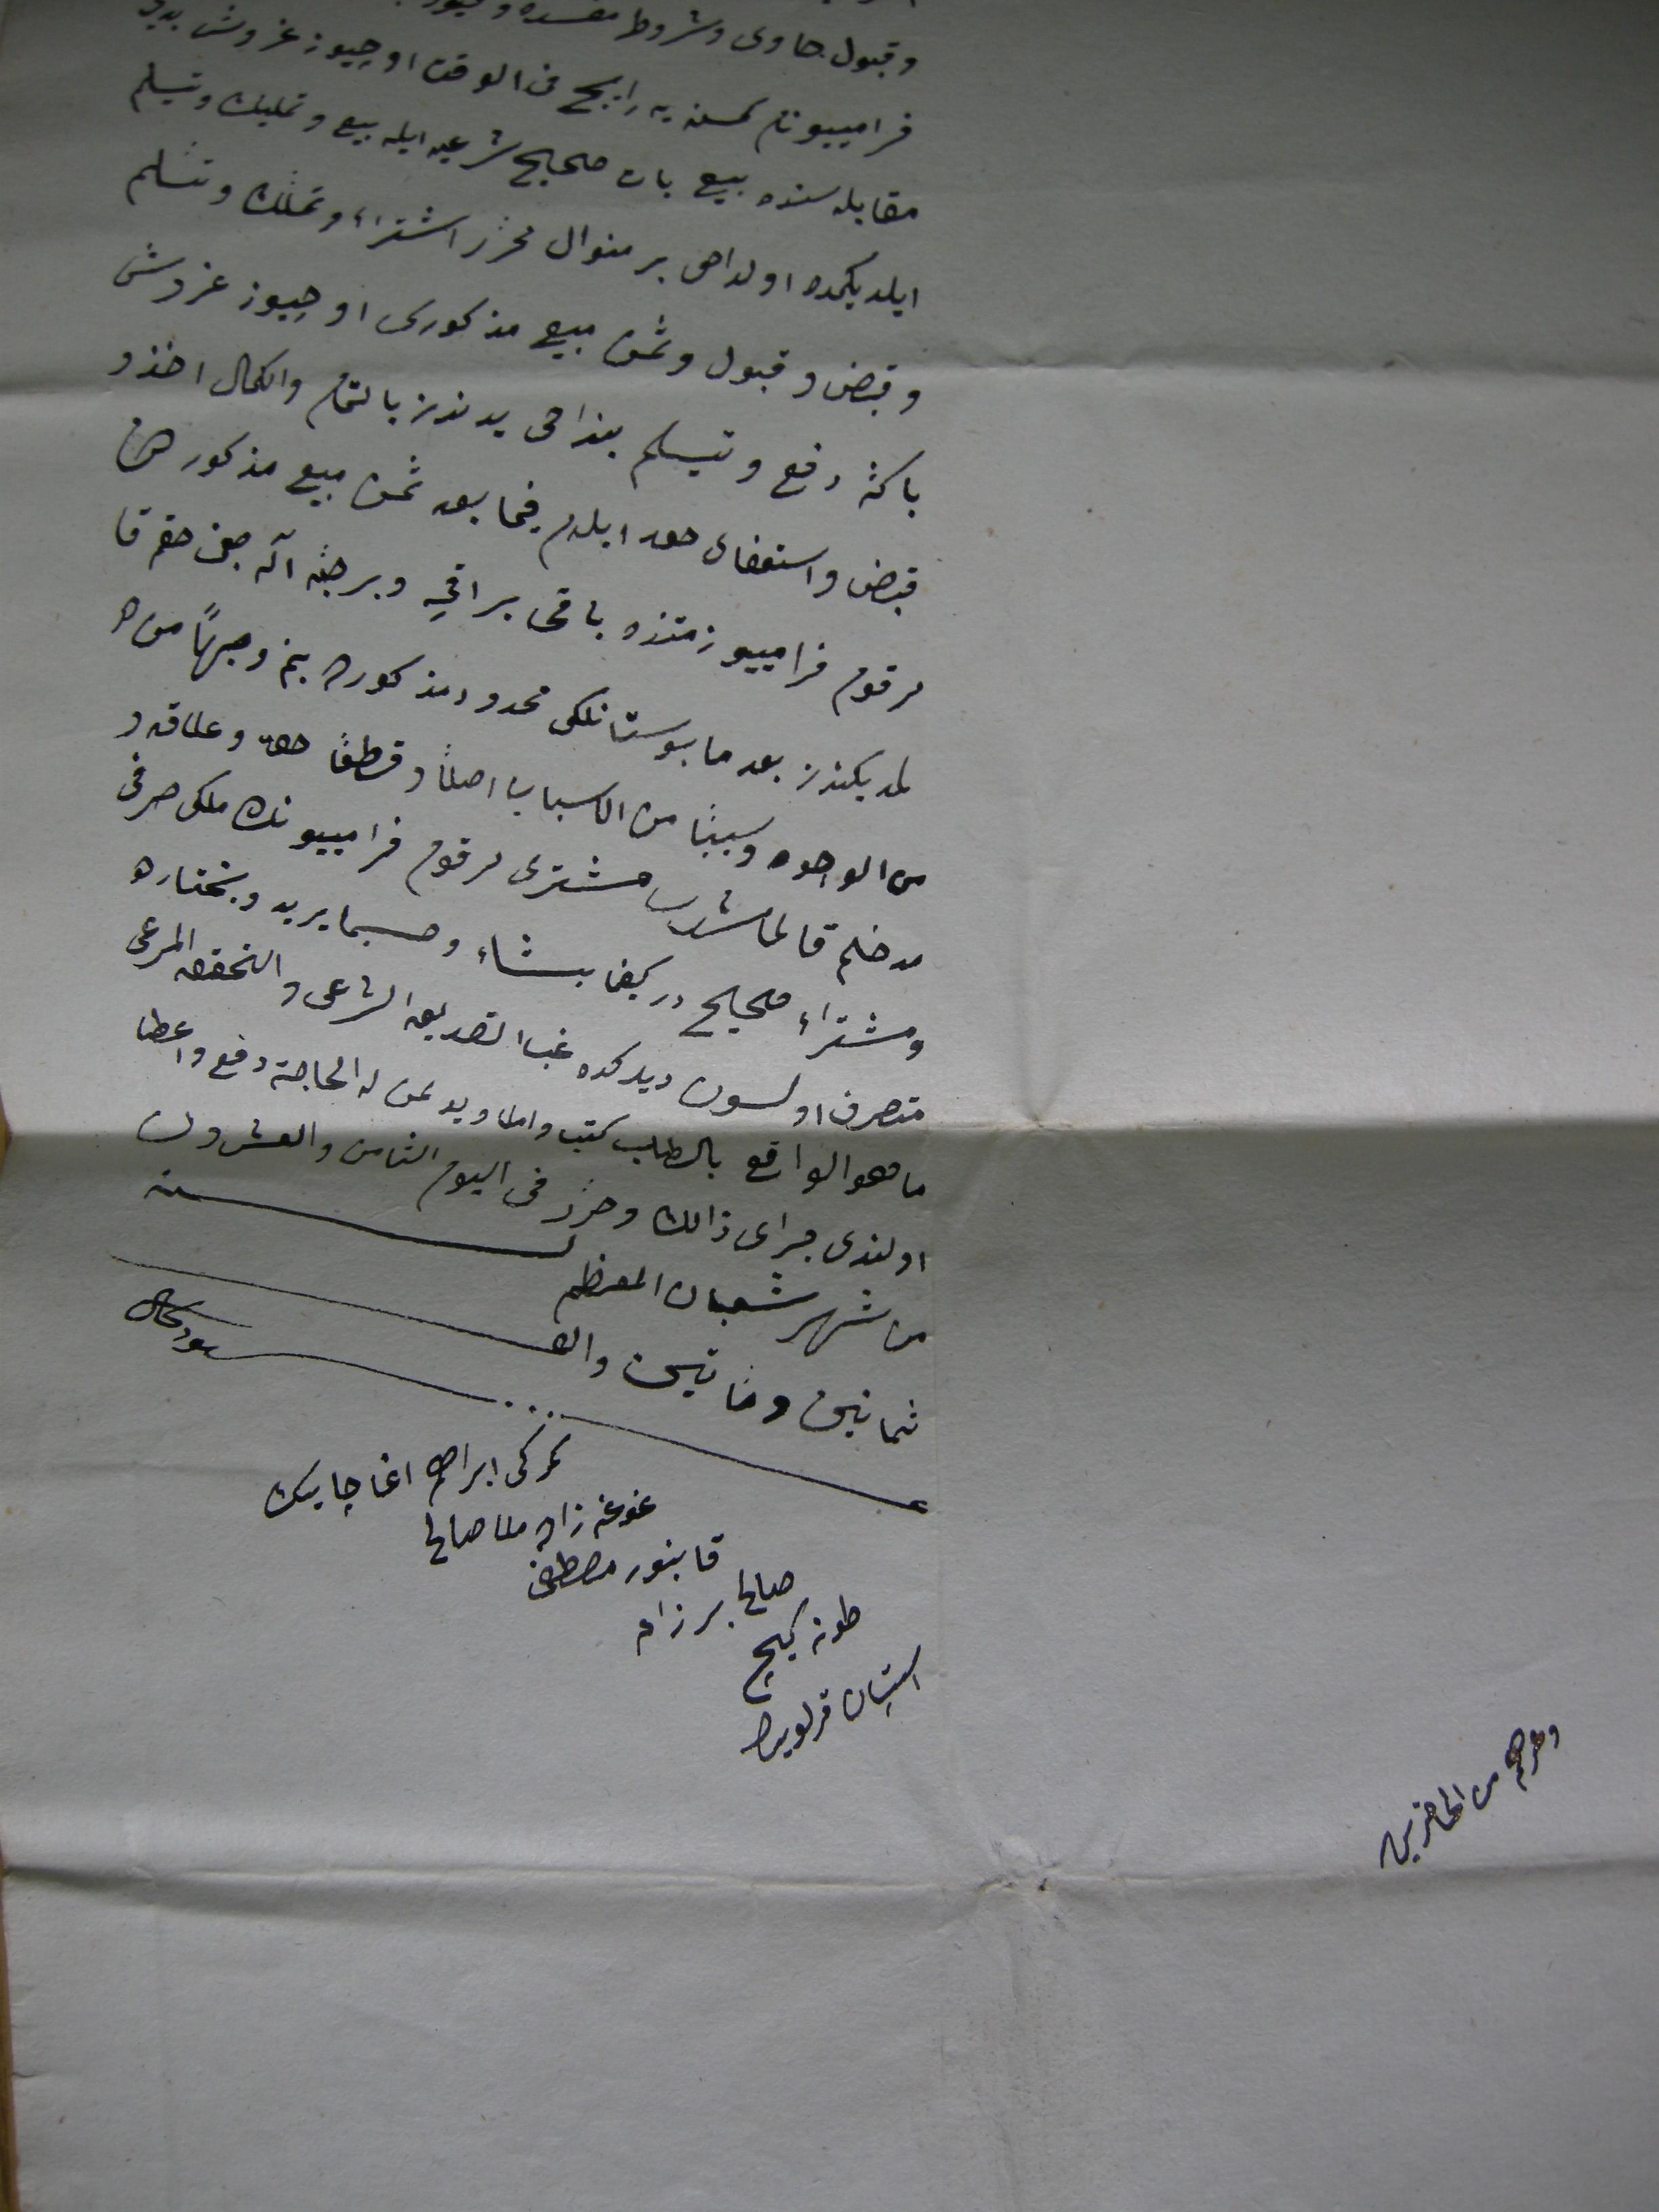 و قبول حاوی و شروط مفسده و
فرامیبو نام کمسنه یه رایج فی الوقت اوچیوز غروش
مقابله سنده بیع بات صحیح شرعیه ایله بیع و تملیك و تسلیم
ایلدیکمده اولداخی بر منوال محرر اشتراء و تملك و تسلم
و قبض و قبول و ثمن مبیع مذکوری اوچیوز غروش
باکه دفع و تسلیم بنداخی یدندن بالتمام والکمال اخذ و
قبض و استیفای حق ایلدم فیما بعد ثمن مبیع مذکوردن
مرقوم فرامیبو ذمتنده باقی بر اقچه و بر حبه آلاجق حقم قا
لمدیکندن بعد ما بوستانلکی محدود مذکورده بنم وجهاً من
من الوجوه و سبباً من الاسباب اصلاً و قطعاً حق و علاقه و
مدخلم قالمامشدر مشتری مرقوم فرامیبونك ملکی صرفی
و مشتراء صحیحیدر کیف یشاء و حسبما یرید و یختاره
متصرف اولسون دیدکده غب التصدیق الشرعی و التحقق المرعی
ما هو الواقع بالطلب کتب و املا و ید لمن له الحاجة دفع و اعطا
اولندی جرای ذالك و حرر فی الیوم الثامن والعشرون
من شهر شعبان المعظم لسنه
ثمانین و مأتین والف
شهود الحال
کمرکی ابراهیم اغا چاپیك
غوغه زاده ملا صالح
قابنور مصطفی
صالح برزاده
طونه کیچ
استپان قرلویك
و غیرهم من الحاضرین